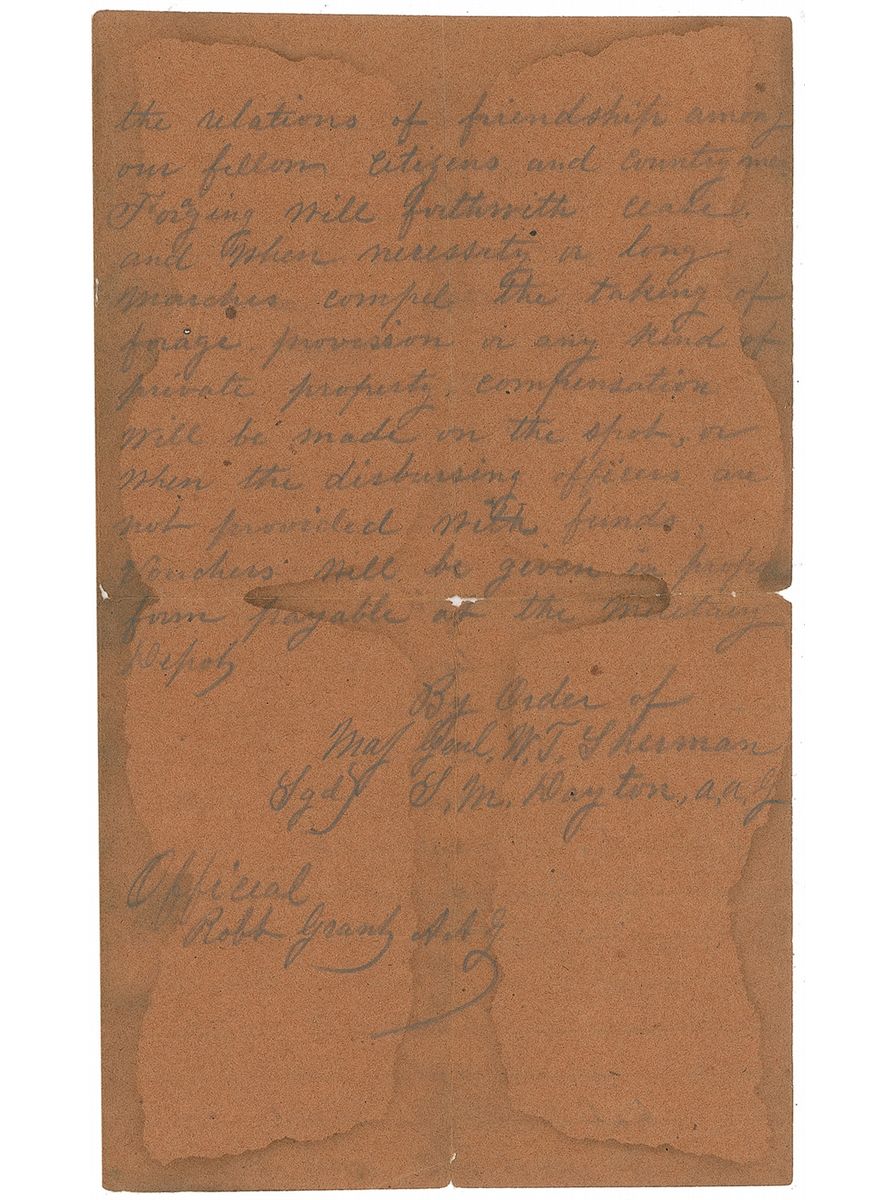 the relations of friendship among
our fellow Citizens and Country men
Forging Will forthwith cease,
and When necessity or long
Marches compel the taking of
forage, provission or any Kind of
private property, compensation
Will be made on the spot, or
When the disbursing officers are
not provided With funds,
Vouchers Will be given in proper
form payable at the Military
Depot
By Order of
Maj Genl. W.T. Sherman
Sgd S. M. Dayton, A.A.G
Official
Robt Grant A A G